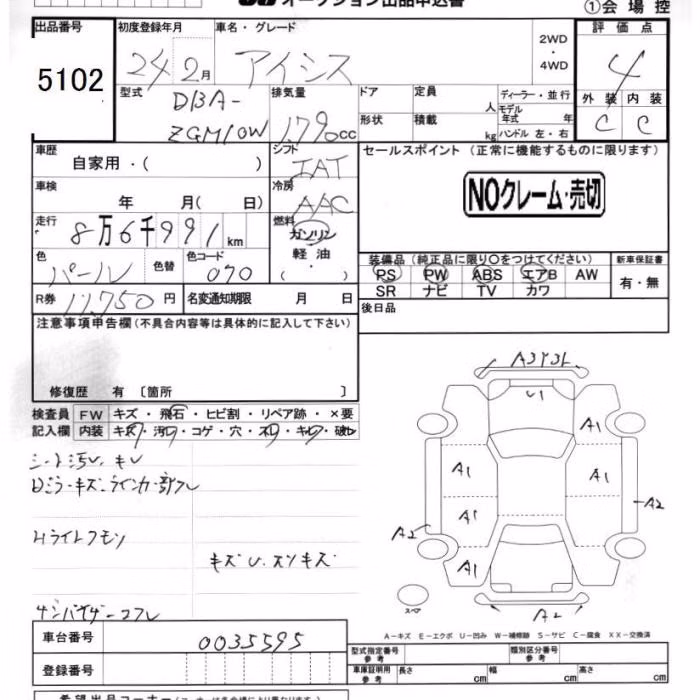 オークション出品申込書 ①会場控
出品番号 初度登録年月 車名・グレード 評価点
5102 24 2月 アイシス 2WD・4WD 4
型式 DBA-ZGM10W 排気量 1790cc ドア 定員 人 ディーラー・並行
形状 積載 kg モデル年式 年 ハンドル 左・右
外装 内装
C C
車歴 自家用・( ) シフト IAT セールスポイント (正常に機能するものに限ります)
NOクレーム・売切
車検 年 月( 日) 冷房 AAC
走行 8万6千991km 燃料 ガソリン 軽油 ( ・ )
色 パール 色替 色コード 070
装備品 (純正品に限り○をつけてください) 新車保証書
PS PW ABS エアB AW 有・無
SR ナビ TV カワ
R券 11,750円 名変通知期限 月 日 後日品
注意事項申告欄 (不具合内容等は具体的に記入して下さい)
修復歴 有 〔箇所 〕
検査員 FW キズ・飛石・ヒビ割・リペア跡・×要
記入欄 内装 キズ・汚レ・コゲ・穴・スレ・キレ・破レ
シート汚レ、キレ
Hライトクモリ
キズ U、スリキズ
A3Y3L
U1
A1
A1 A1
A1
A2 A2
A1
スペア A2
A-キズ E-エクボ U-凹み W-補修跡 S-サビ C-腐食 XX-交換済
車台番号 0035595
登録番号
型式指定番号 参考 類別区分番号 参考
車庫証明用 参考 長さ cm 幅 cm 高さ cm
希望出品コーナー